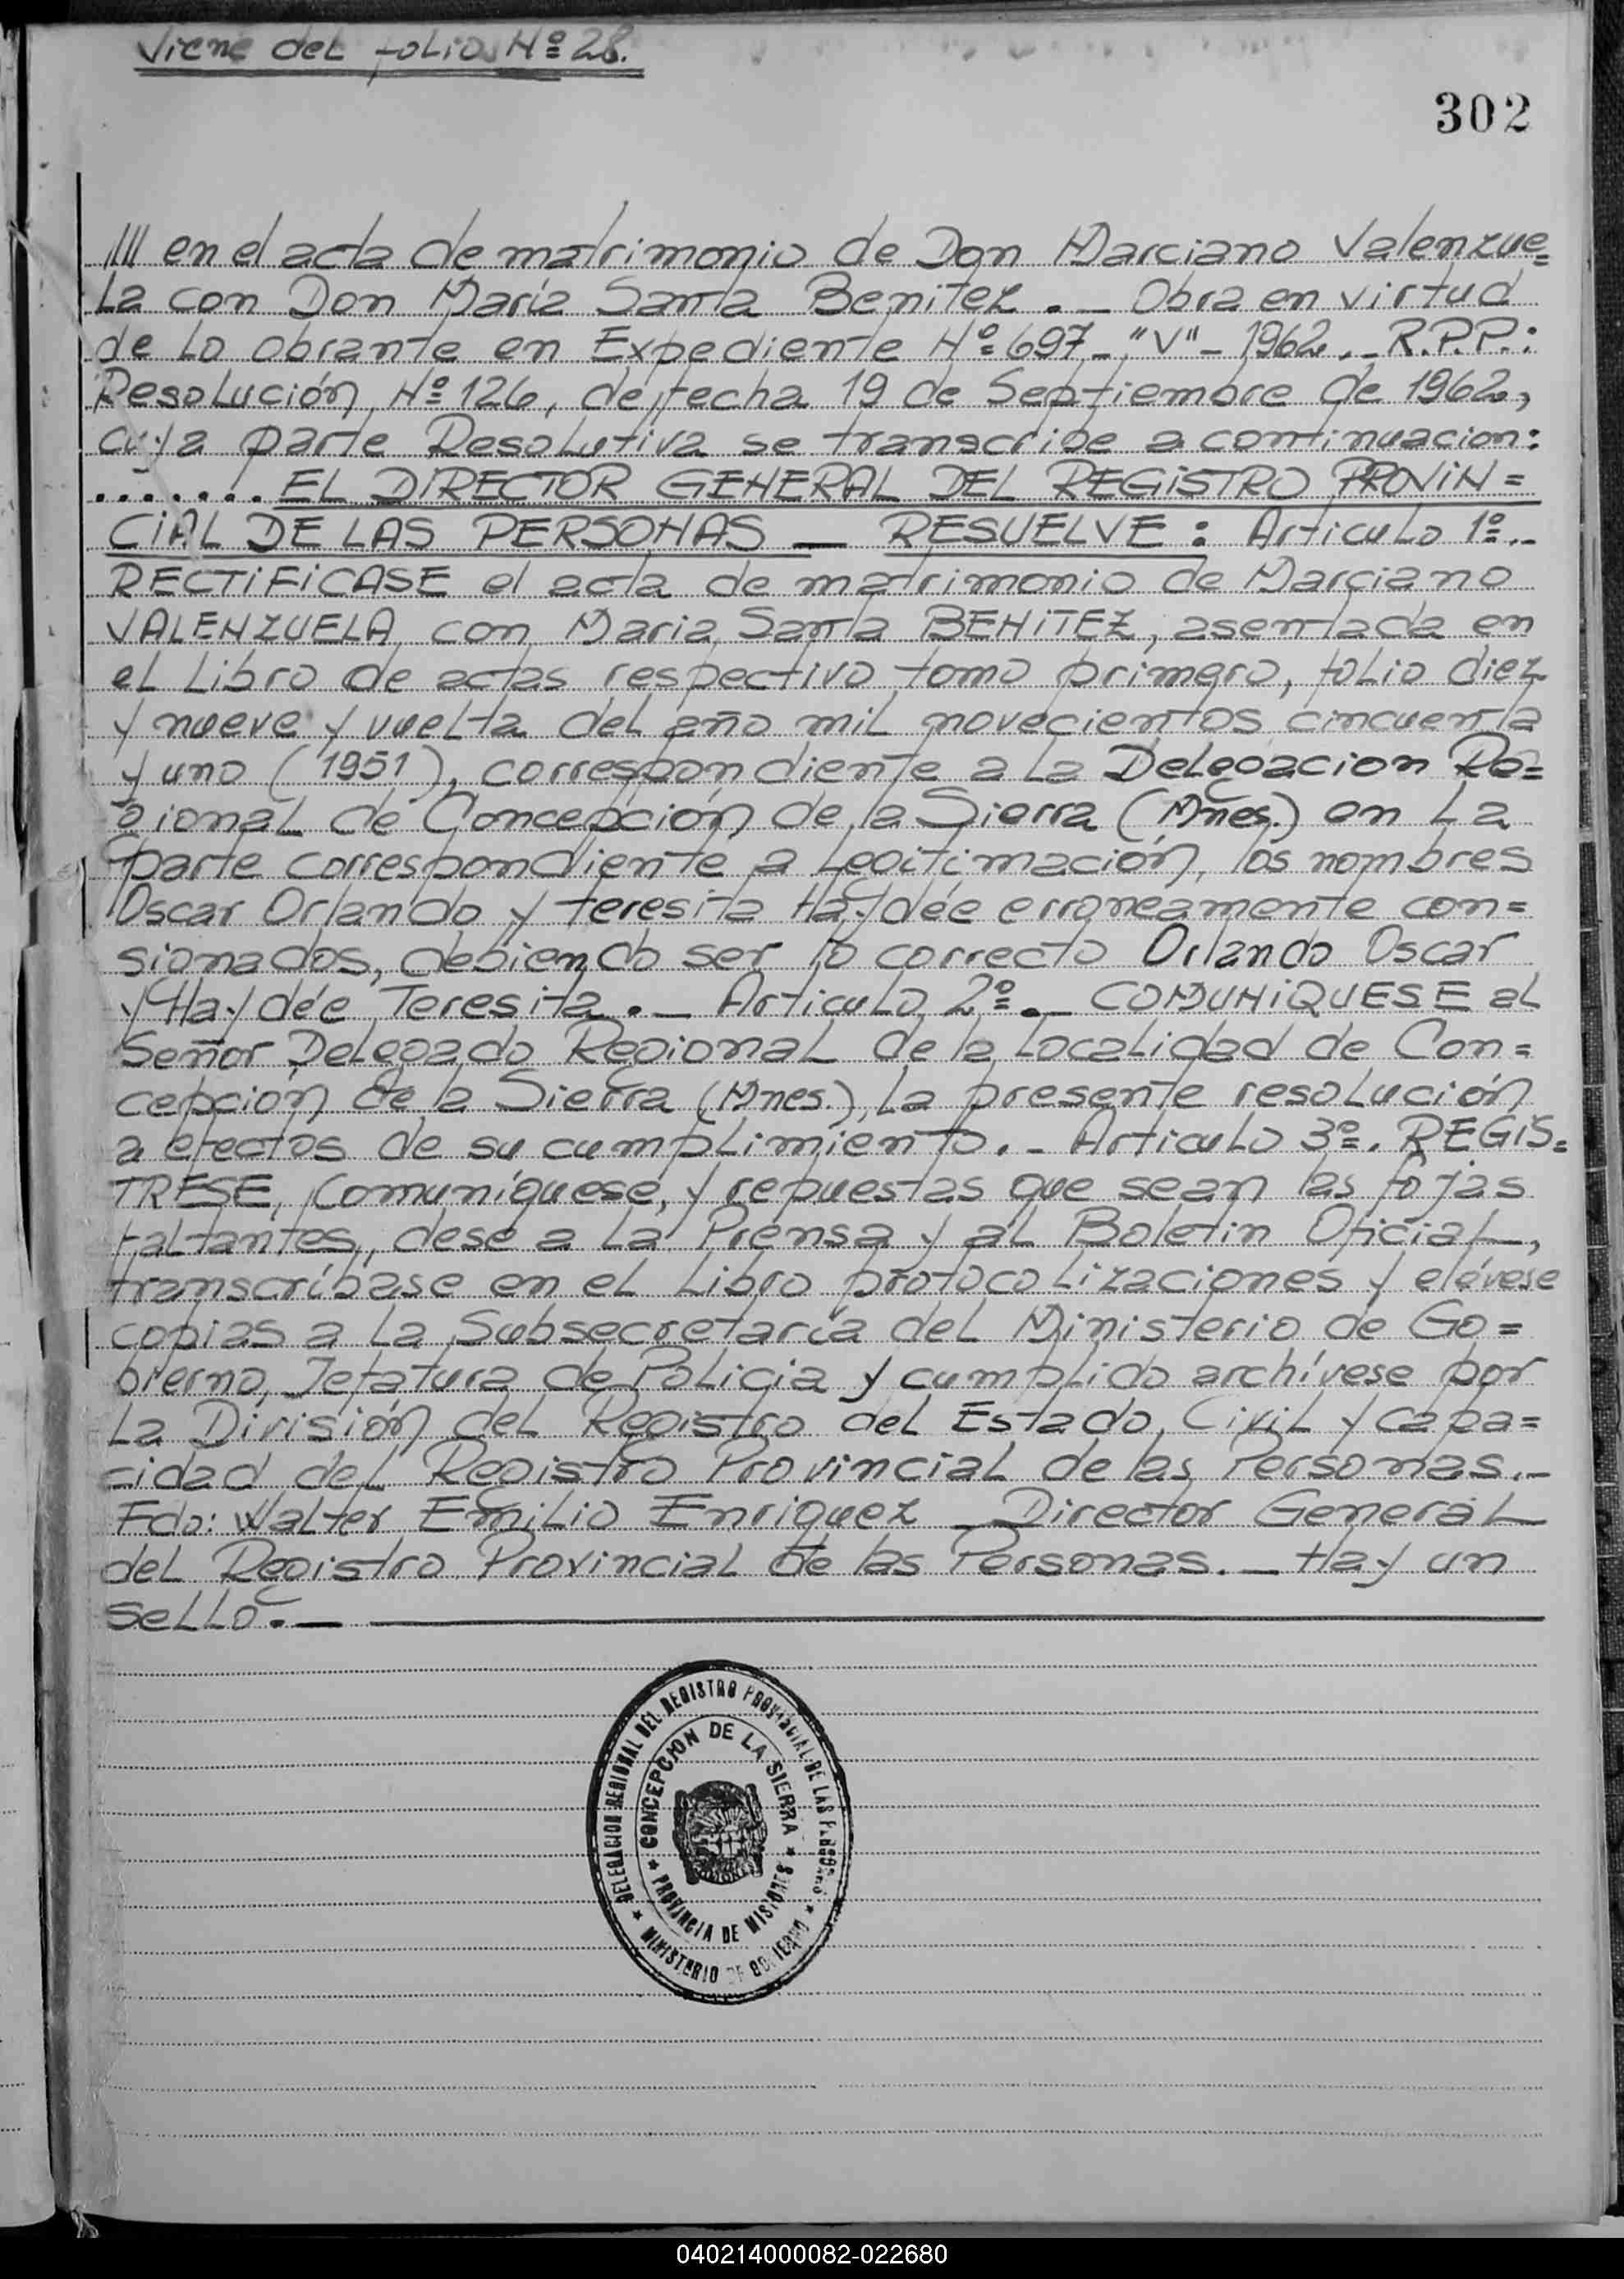 Viene del folio Nº 28.
302
//// en el acta de matrimonio de Don Marciano Valenzue=
la con Don María Santa Benitez._ Obra en virtud
de lo obrante en Expediente Nº 697_"V"_1962._R.P.P.:
Resolución, Nº 126, de fecha 19 de Septiembre de 1962,
cuya parte Resolutiva se transcribe a continuacion:
....... EL DIRECTOR GENERAL DEL REGISTRO PROVIN=
CIAL DE LAS PERSONAS — RESUELVE: Articulo 1º._
RECTIFICASE el acta de matrimonio de Marciano
VALENZUELA con Maria Santa BENITEZ, asentada en
el Libro de actas respectivo tomo primero, folio diez
y nueve y vuelta del año mil novecientos cincuenta
y uno (1951), correspondiente a la Delegacion Re=
gional de Concepción de la Sierra (Mnes.) en la
parte correspondiente a Legitimación, los nombres
Oscar Orlando y teresita Haydée erroneamente con=
sionados, debiendo ser lo correcto Orlando Oscar
y Haydée Teresita._ Articulo 2º._ COMUNIQUESE al
Señor Delegado Regional de la localidad de Con=
cepción de la Sierra (Mnes.), la presente resolución
a efectos de su cumplimiento._ Articulo 3º. REGIS=
TRESE, Comuníquese, y repuestas que sean las fojas
faltantes, dese a la Prensa y al Boletin Oficial,
transcríbase en el Libro protocolizaciones y elévese
copias a la Subsecretaría del Ministerio de Go=
bierno, Jefatura de Policia y cumplido archívese por
la División del Registro del Estado Civil y Capa=
cidad del Registro Provincial de las Personas._
Fdo: Walter Emilio Enriquez _ Director General
del Registro Provincial de las Personas._ Hay un
sello._
DELEGACION REGIONAL DEL REGISTRO PROVINCIAL DE LAS PERSONAS
CONCEPCION DE LA SIERRA
PROVINCIA DE MISIONES
MINISTERIO DE GOBIERNO
040214000082-022680